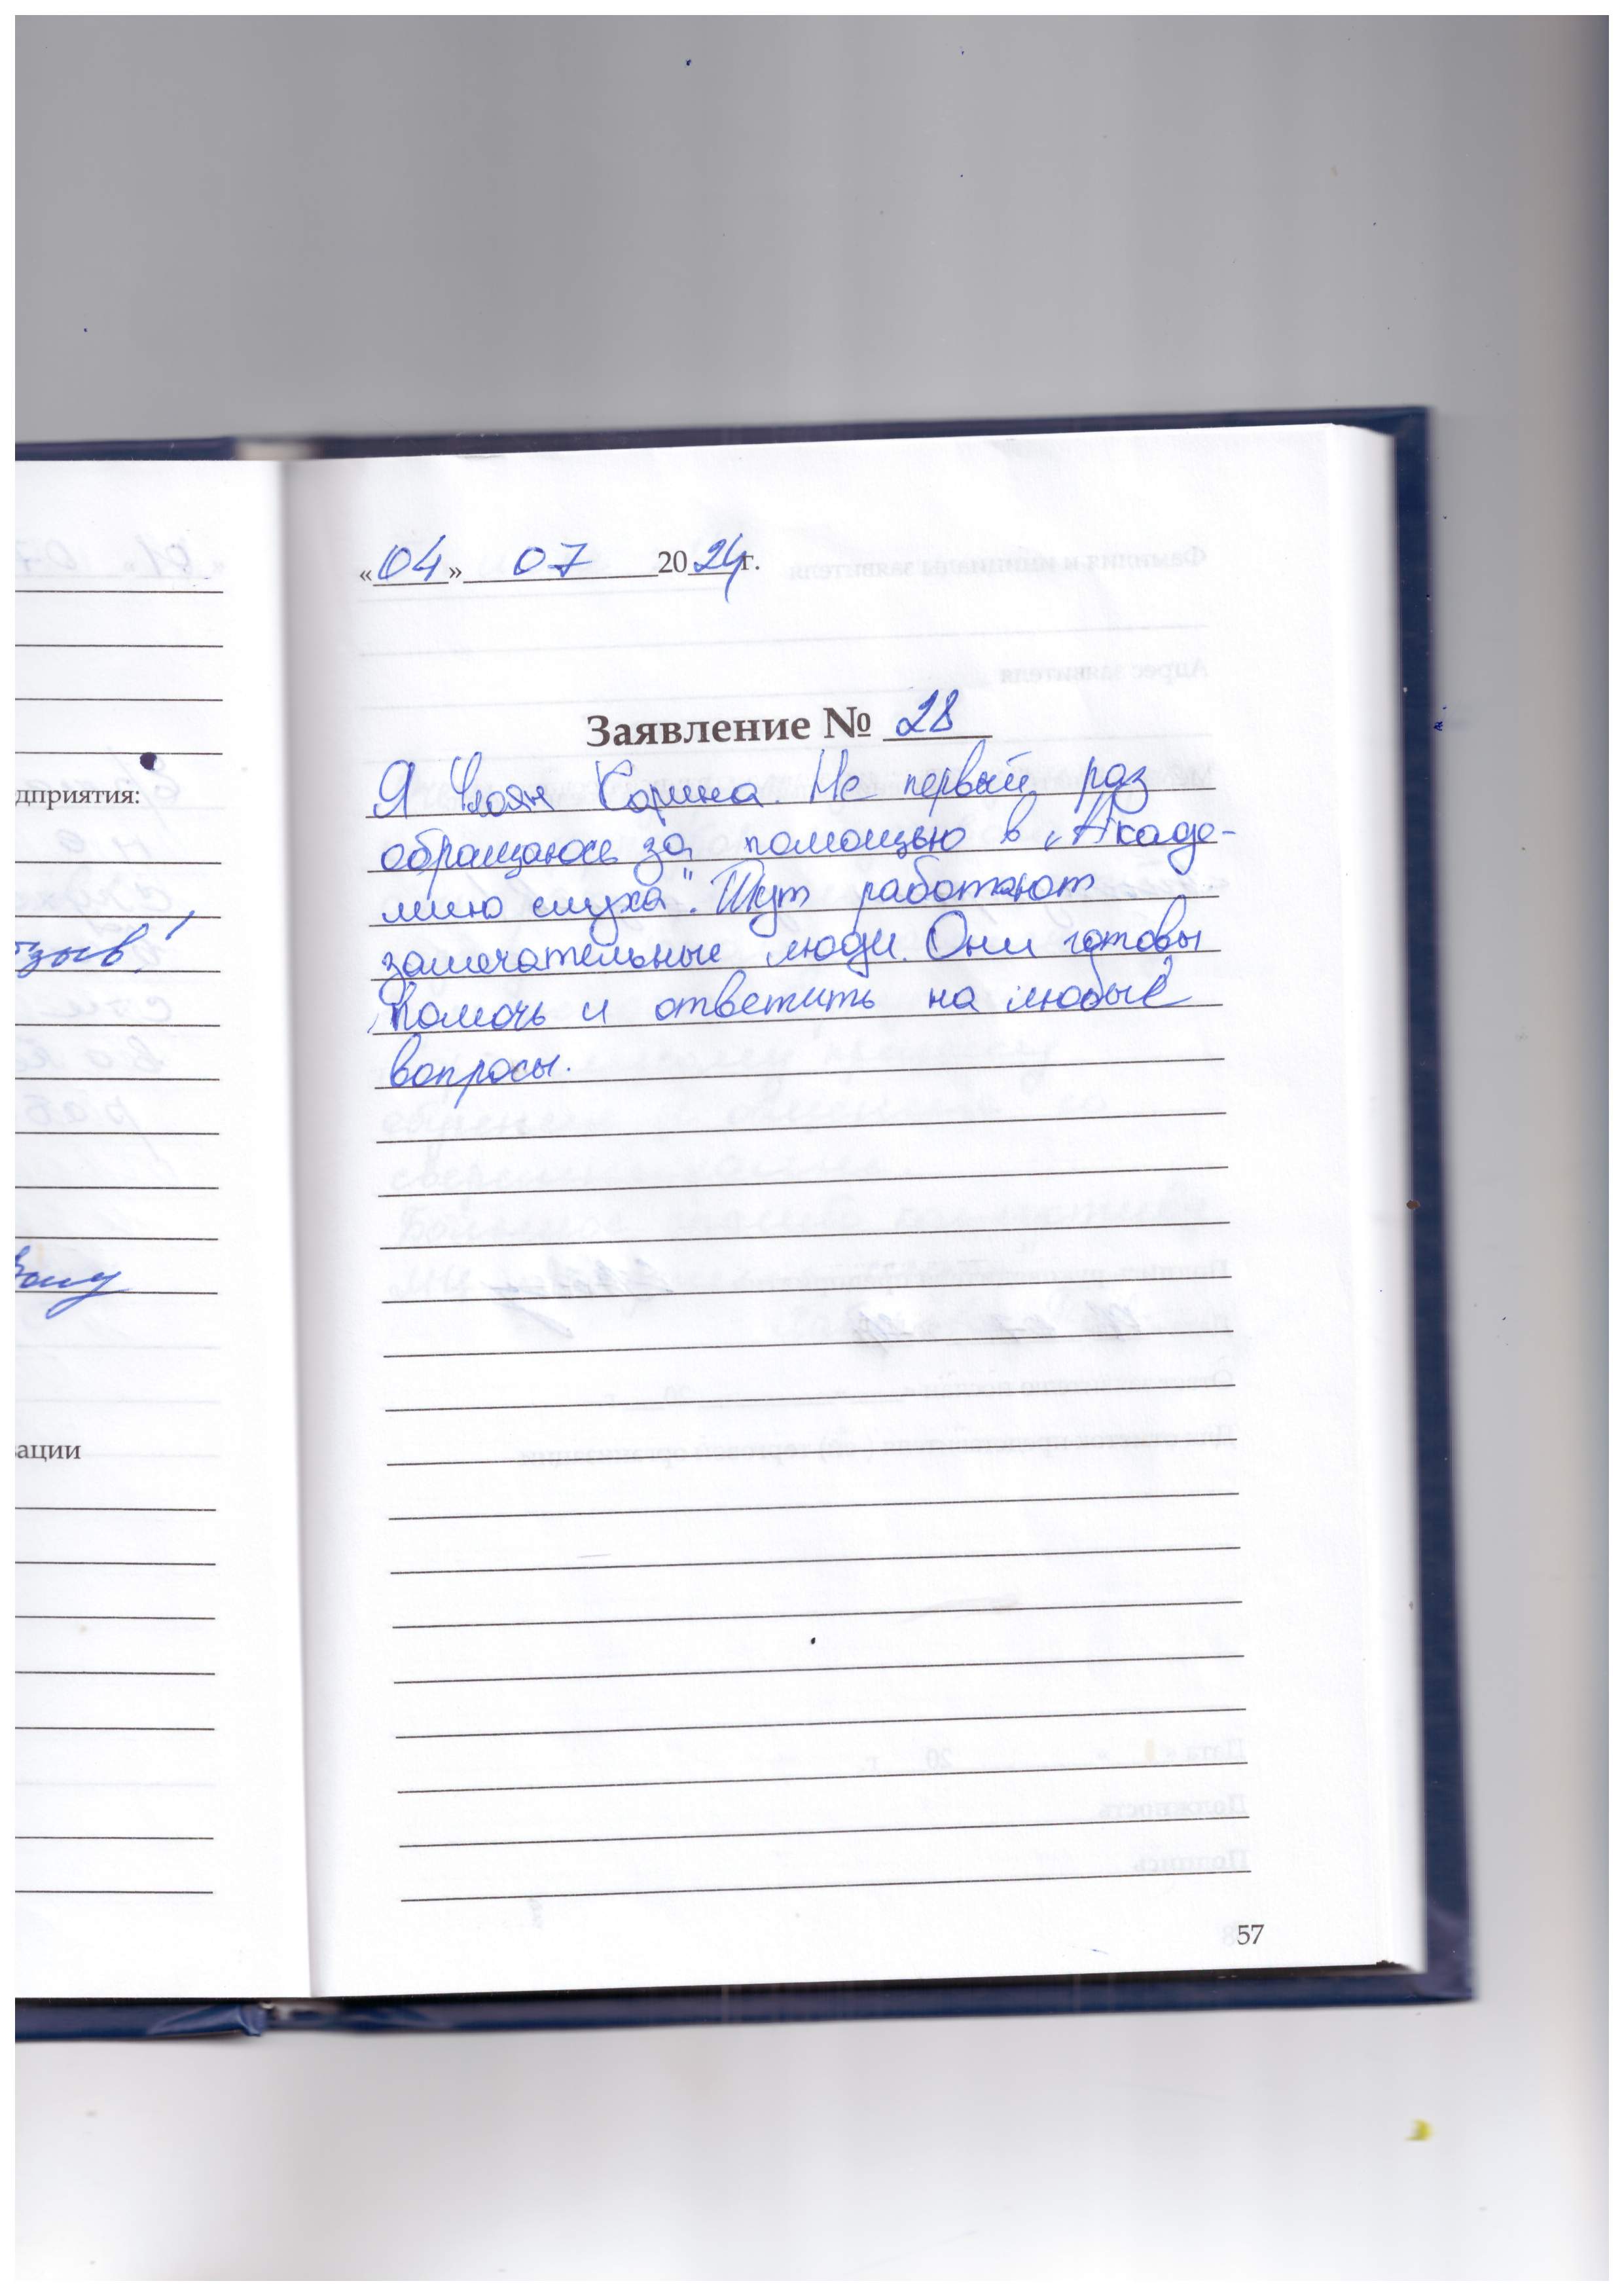 «04» 07 2024г.
Заявление № 28
Я Карина. Не первый раз
обращаюсь за помощью в „Акаде-
мию слуха". Тут работают
замечательные люди. Они готовы
помочь и ответить на любые
вопросы.
57
дприятия:
тзыв!
ации